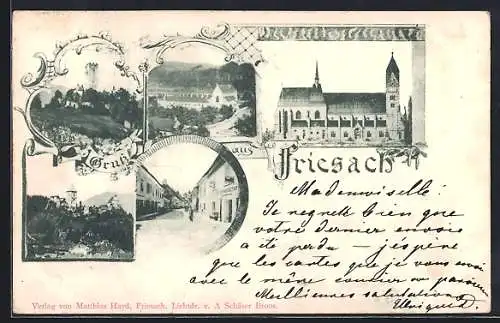 Gruß
aus
Friesach
Mademoiselle!
Je regrette bien que
votre dernier envoi
a été perdu – j'éspère
que les cartes que je vous envoie
avec le même courrier vous
Meilleures salutations
Verlag von Matthäus Hard, Friesach. Lichtdr. v. A Schiöser Brunn.